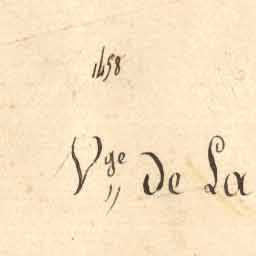 1458
Vge de La